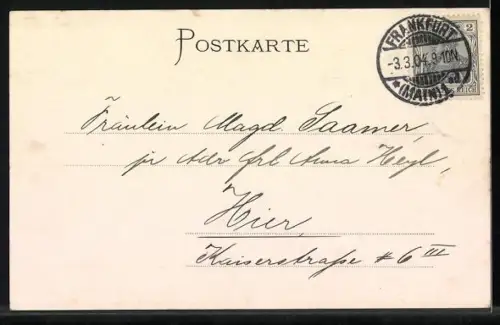 POSTKARTE
FRANKFURT
-3.3.04.9-10N.
*(MAIN)1.*a
2
REICH
Fräulein Magd. Saamer,
pr Adr Frl Anna Heyl,
Hier,
Kaiserstraße # 6 III